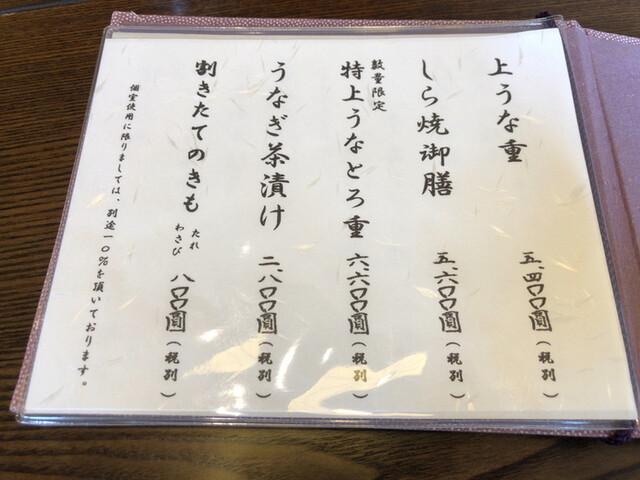 上うな重 五、四〇〇圓（税別）
しら焼御膳 五、六〇〇圓（税別）
数量限定
特上うなとろ重 六、六〇〇圓（税別）
うなぎ茶漬け 二、八〇〇圓（税別）
割きたてのきも たれ わさび 八〇〇圓（税別）
個室使用に限りましては、別途一〇％を頂いております。